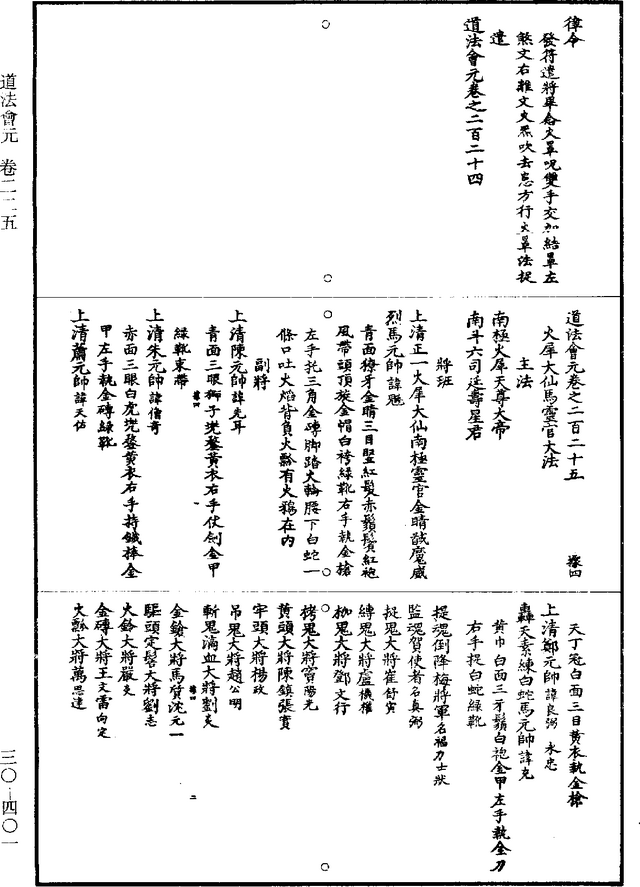 道法會元　卷二二五
三〇－四〇一
律令
發符遣將畢念火罩呪雙手交加結罩左
煞文右雜文火炁吹去忘方行火罩法捉
遣
道法會元卷之二百二十四
道法會元卷之二百二十五　彖四
火犀大仙馬靈官大法
主法
南極火犀天尊大帝
南斗六司延壽星君
將班
上清正一火犀大仙南極靈官金睛戩魔威
烈馬元帥諱勝
青面獠牙金睛三目豎紅髮赤鬚鬢紅袍
風帶頭頂旋金帽白袴綠靴右手執金槍
左手托三角金磚脚踏火輪腰下白蛇一
條口吐火焰背負火瓢有火鴉在內
副將
上清陳元帥諱先耳
青面三眼獅子兜鍪黃衣右手仗劍金甲
綠靴束帶
上清朱元帥諱僧奇
赤面三眼白虎兜鍪黃衣右手持鐵棒金
甲左手執金磚綠靴
上清蕭元帥諱天佑
天丁冠白面三目黃衣執金槍
上清鄭元帥諱良弼　永忠
轟天素練白蛇馬元帥諱充
黃巾白面三牙鬚白袍金甲左手執全刀
右手捉白蛇綠靴
捉魂倒降梅將軍名福力士狀
監魂賀使者名真弼
捉鬼大將崔舒寅
縛鬼大將盧機權
枷鬼大將鄧文行
栲鬼大將竇陽光
黃頭大將陳鎮張賓
牢頭大將楊政
吊鬼大將趙公明
斬鬼滴血大將劉炎
金鎗大將馬質沈元一
驅頭定髻大將劉志
火鈴大將嚴友
金磚大將王文雷向定
火瓢大將萬思達